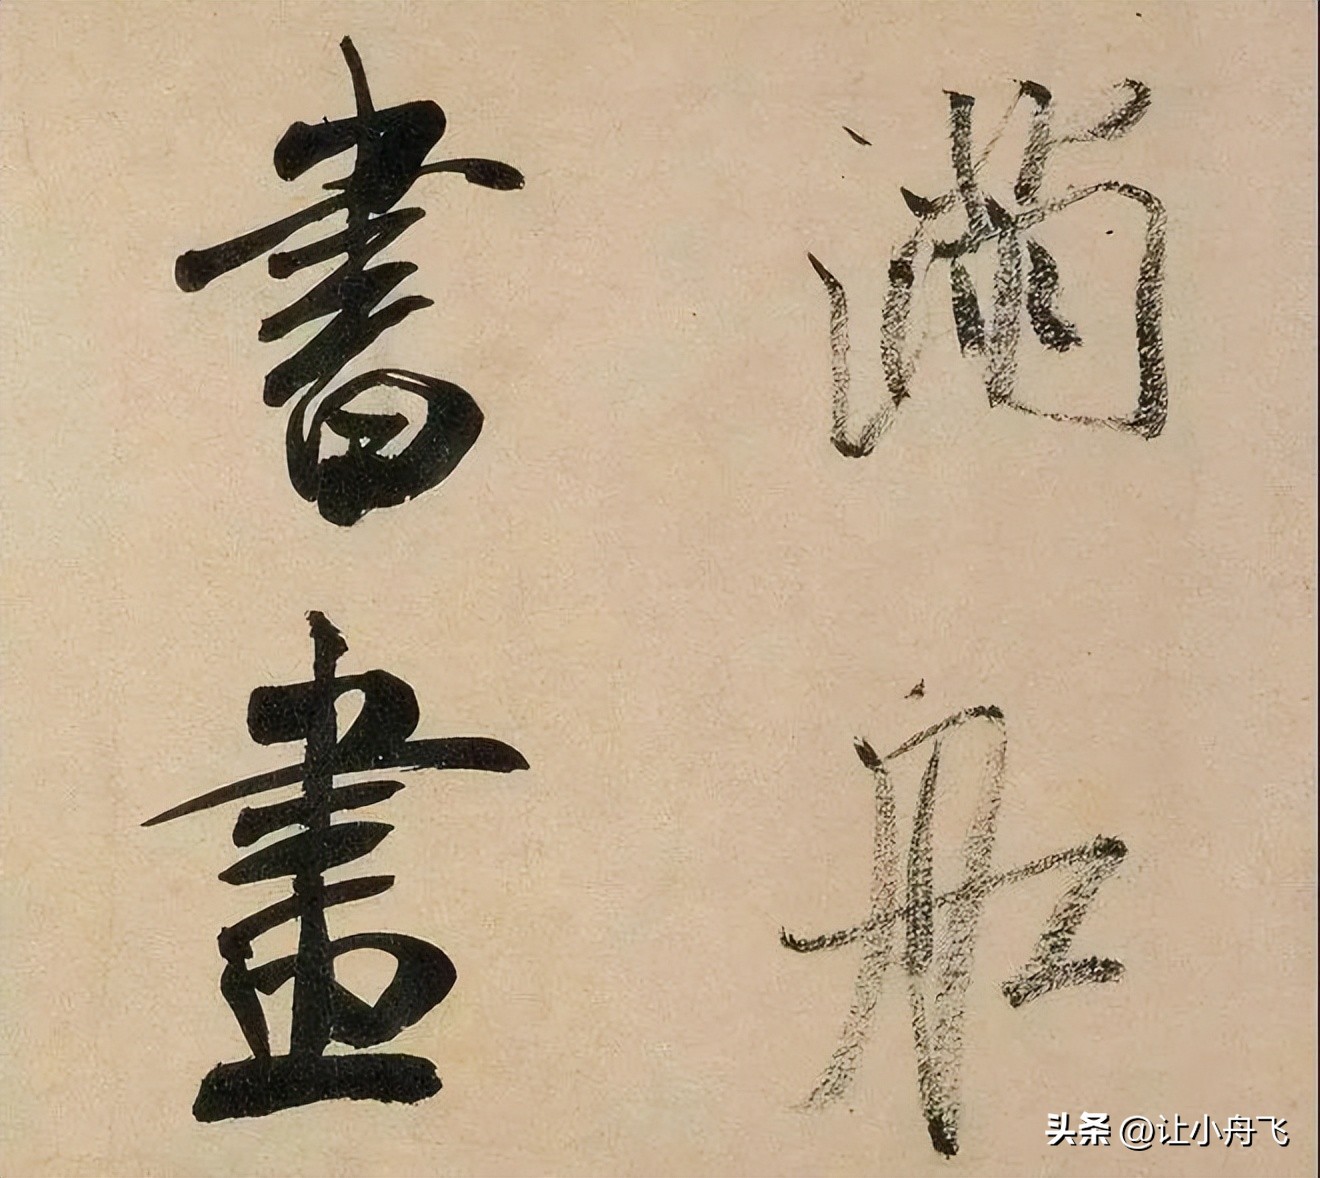 滿船
書畫
头条 @让小舟飞